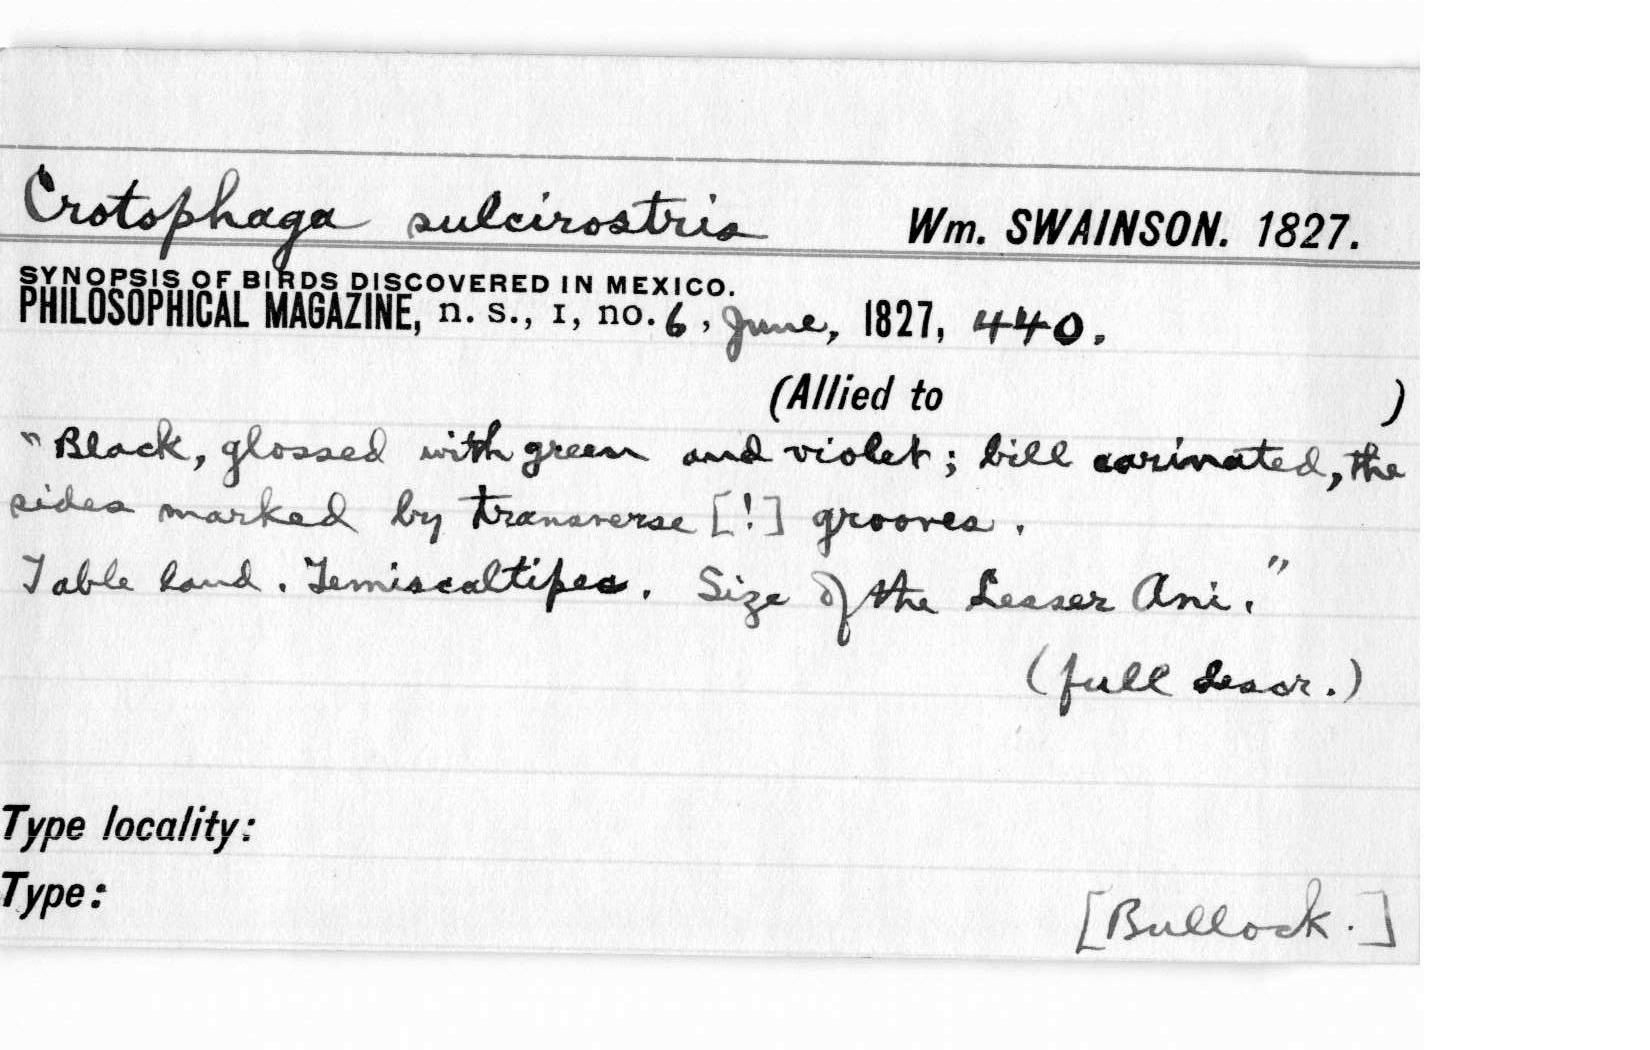 Crotophaga sulcirostris Wm. SWAINSON. 1827.
SYNOPSIS OF BIRDS DISCOVERED IN MEXICO.
PHILOSOPHICAL MAGAZINE, n. s., I, no. 6, June, 1827, 440.
(Allied to )
"Black, glossed with green and violet; bill carinated, the
sides marked by transverse [!] grooves.
Table land. Temiscaltipec. Size of the Lesser Ani."
(full descr.)
Type locality:
Type:
[Bullock.]